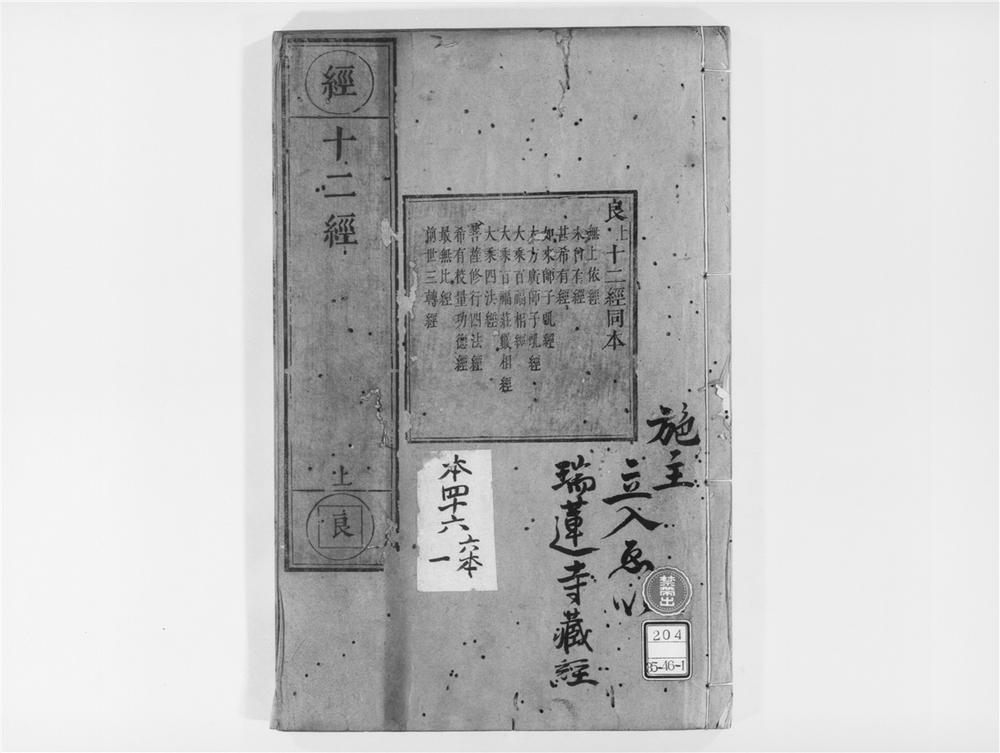 良上十二經同本
無上依經
未曾有經
甚希有經
如來師子吼經
大方廣師子吼經
大乘百福相經
大乘百福莊嚴相經
大乘四法經
菩薩修行四法經
希有校量功德經
最無比經
前世三轉經
經
十二經
上
良
施主
立入
瑞蓮寺藏經
本四十六
六本
一
禁帶出
204
35-46-1